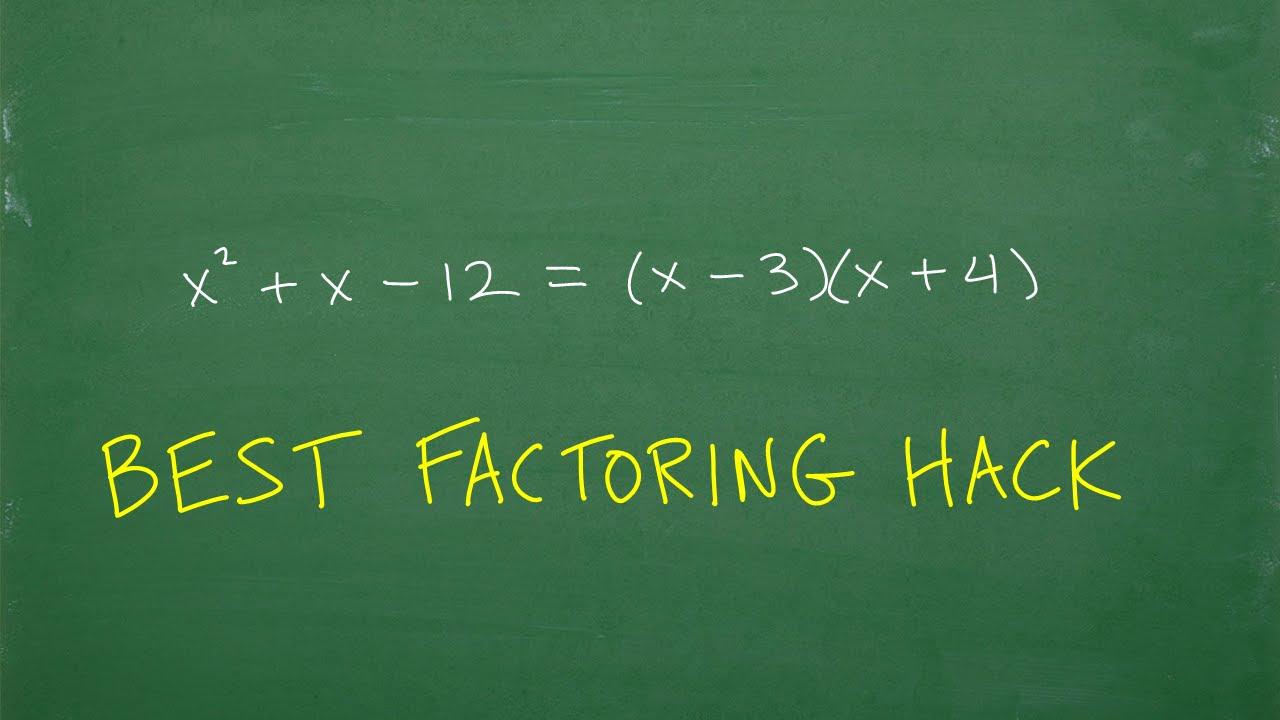 x² + x - 12 = (x - 3)(x + 4)
BEST FACTORING HACK